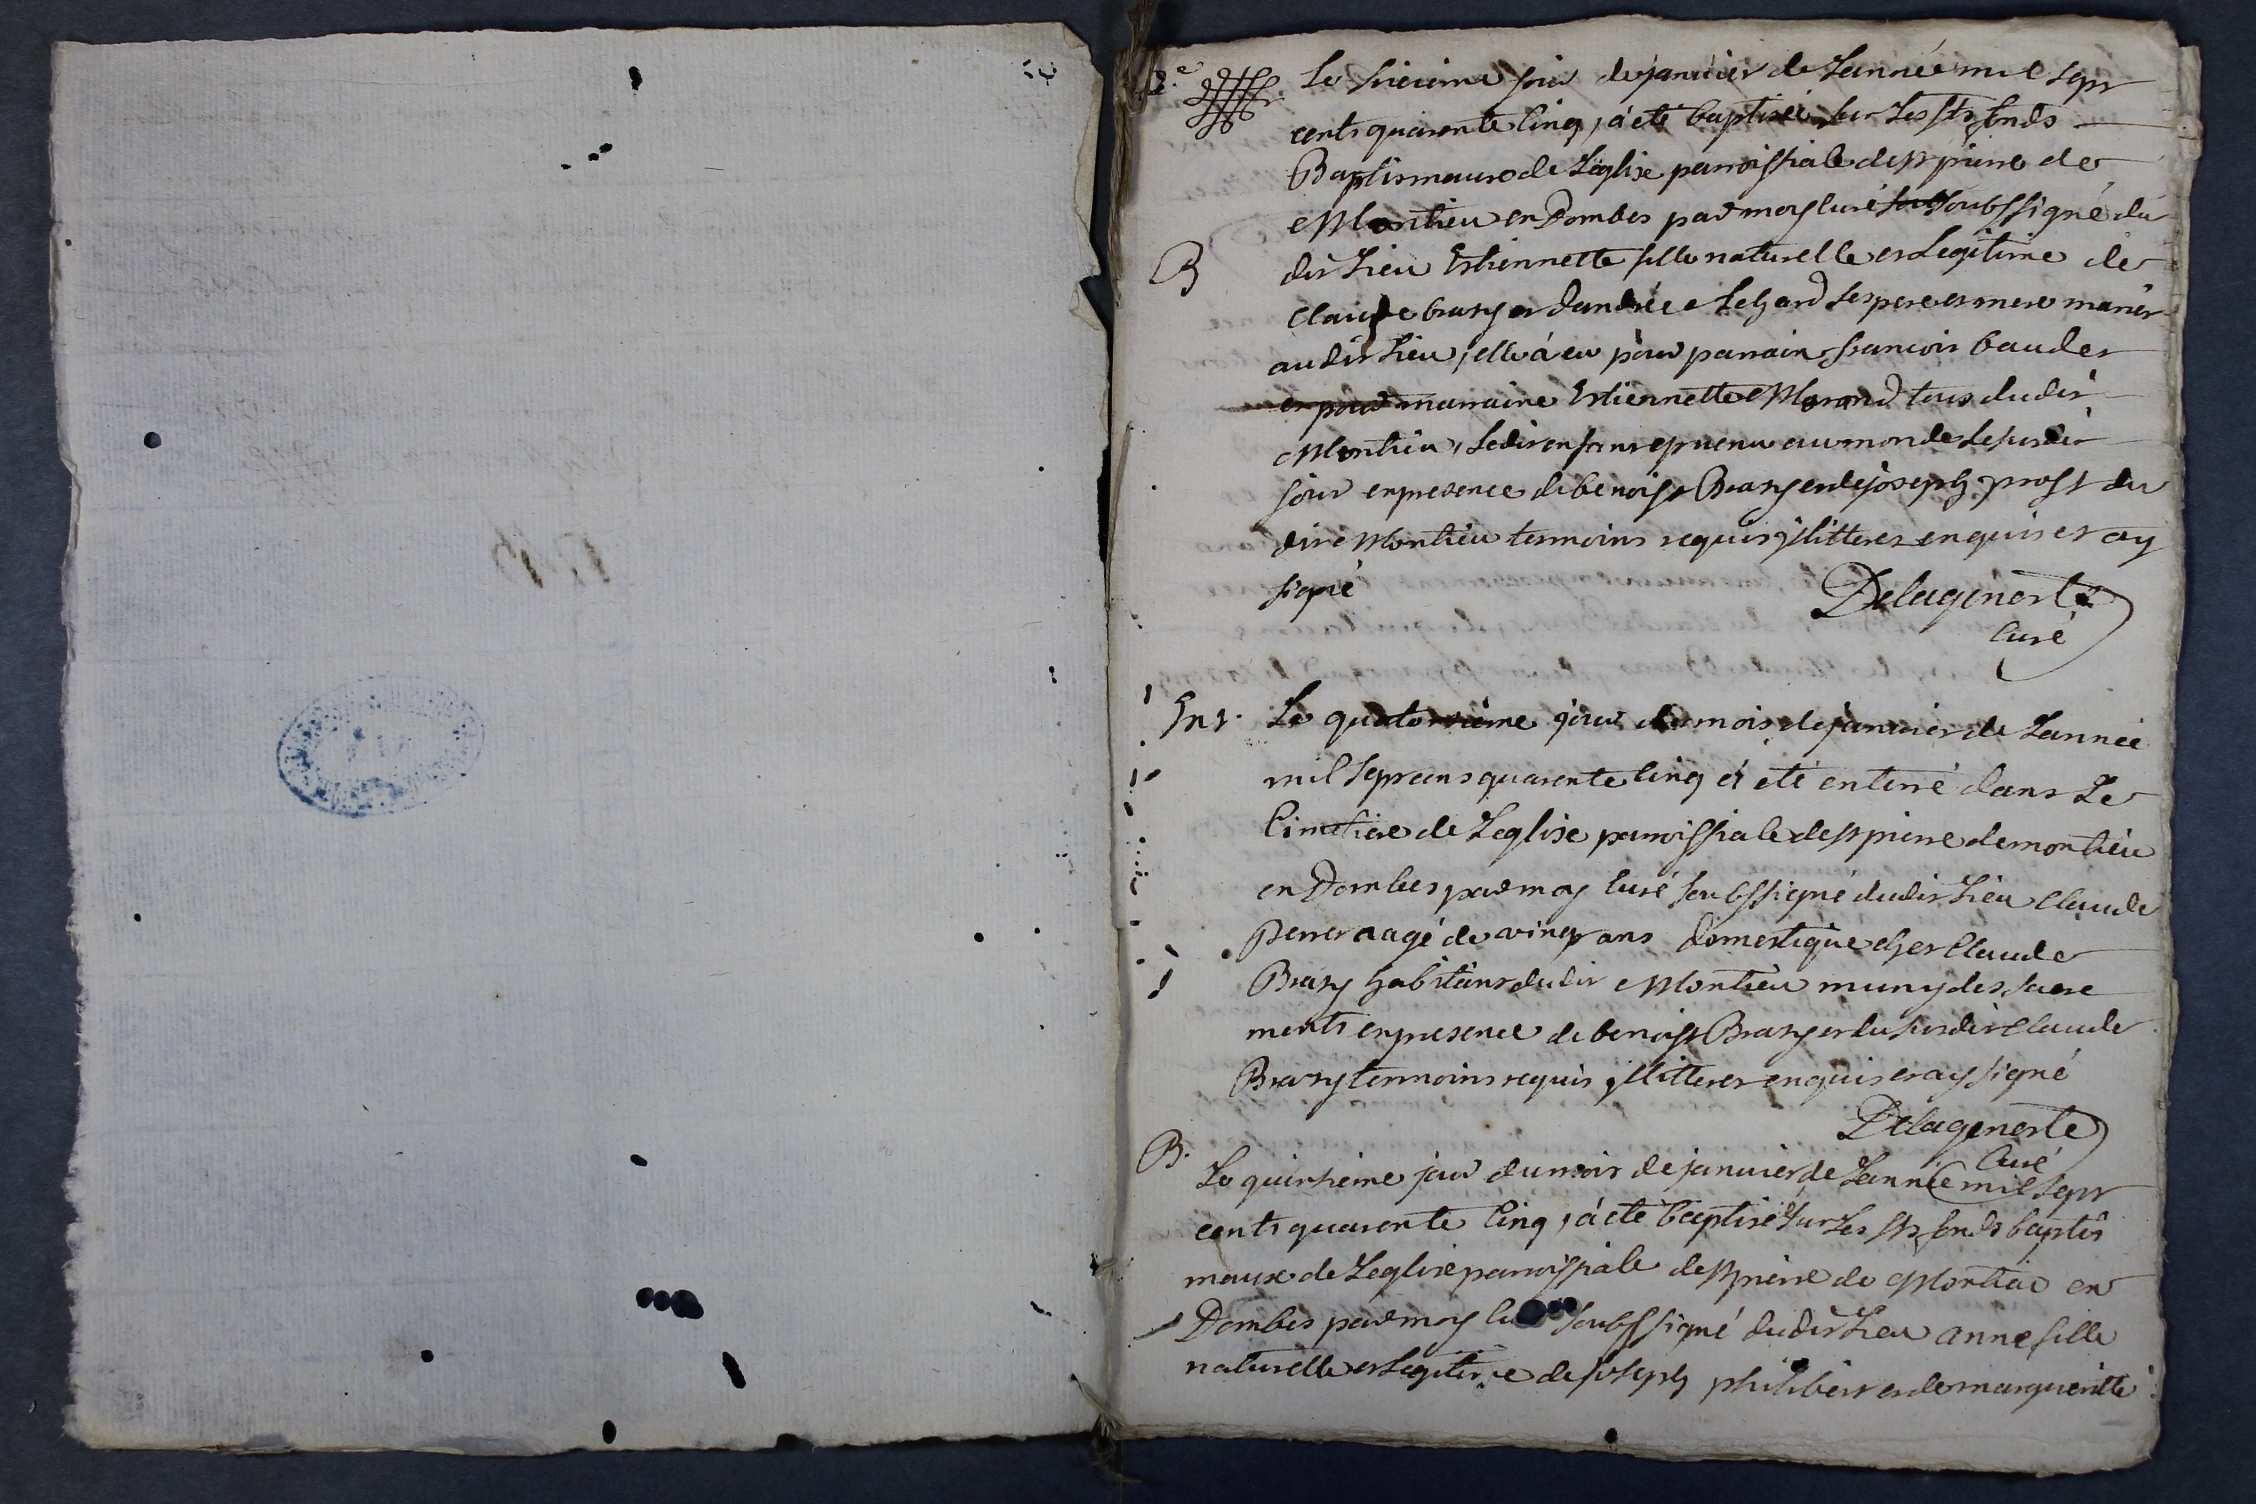 Le sixieme jour de janvier de Lannée mil sept
cents quarente Cinq, a été baptisée sur Les sts fonds
Baptismaux de Leglise parroissiale de st pierre de
Montieu en Dombes par moy Curé soubssigné du
dit Lieu Estiennette fille naturelle et Legitime de
Claude brasy et Dandrée ses pere et mere mariés
audit Lieu, elle a eu pour parrain francois baudet
et pour marraine Estiennette Morand tous dudit
Montieu, Ledit enfant venu au monde Le susdit
jour en presence de benoist Brasy et de joseph prost du
dit Montieu temoins requis jllitteres enquis et ay
signé
Delageneste
Curé
Ent. Le quatorzième jour du mois de janvier de Lannée
mil sept cens quarente Cinq a été enterré dans Le
Cimetiere de Leglise parroissiale de st pierre de montieu
en Dombes par moy Curé soubssigné dudit Lieu Claude
Perret aagé de vingt ans domestique ches Claude
Brasy habitant dudit Montieu muny des sacre
ments en presence de benoist Brasy et du susdit Claude
Brasy temoins requis jllitteres enquis et ay signé
Delageneste
Curé
B.
Le quinzieme jour du mois de janvier de Lannée mil sept
cents quarente Cinq, a été baptisé sur Les sts fonds baptis
maux de Leglise parroissiale de st pierre de Montieu en
Dombes par moy soubssigné dudit Lieu anne fille
naturelle et Legitime de joseph philibert et de margueritte